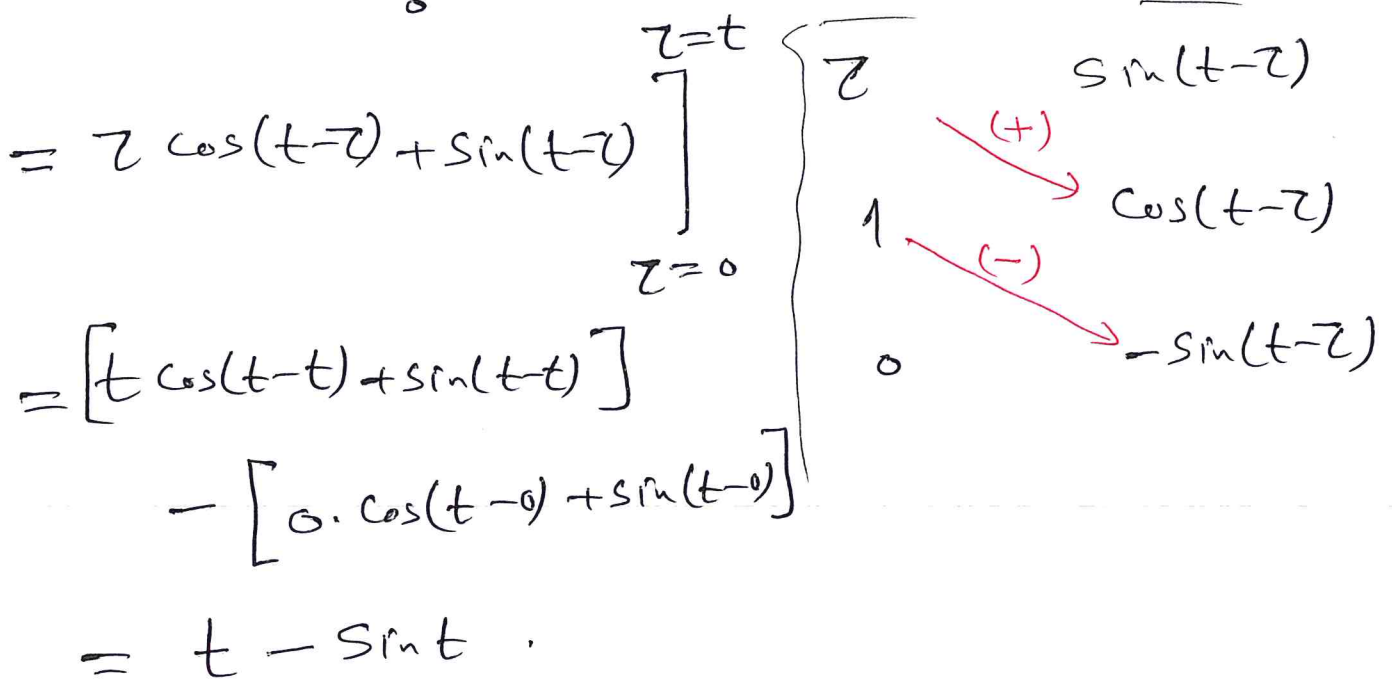 τ=t
= τ cos(t-τ) + sin(t-τ) ]
τ=0
= [t cos(t-t) + sin(t-t)]
- [0. cos(t-0) + sin(t-0)]
= t - sin t .
τ sin(t-τ)
(+)
1 cos(t-τ)
(-)
0 -sin(t-τ)